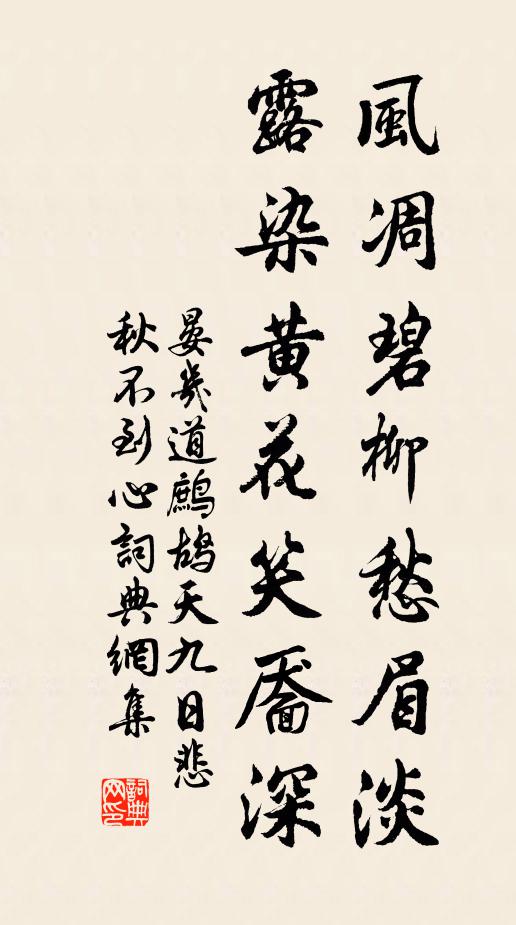 風凋碧柳愁眉淡
露染黄花笑靨深
晏幾道鷓鴣天九日悲
秋不到心詞典網集
詞典網印